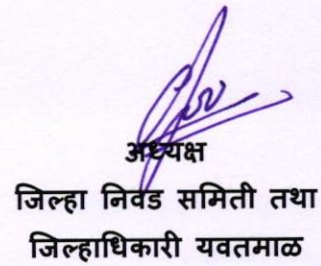 अध्यक्ष
जिल्हा निवड समिती तथा
जिल्हाधिकारी यवतमाळ